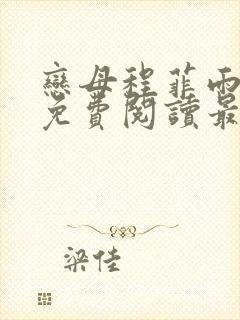 戀母程菲雨
免費閱讀最
梁佳